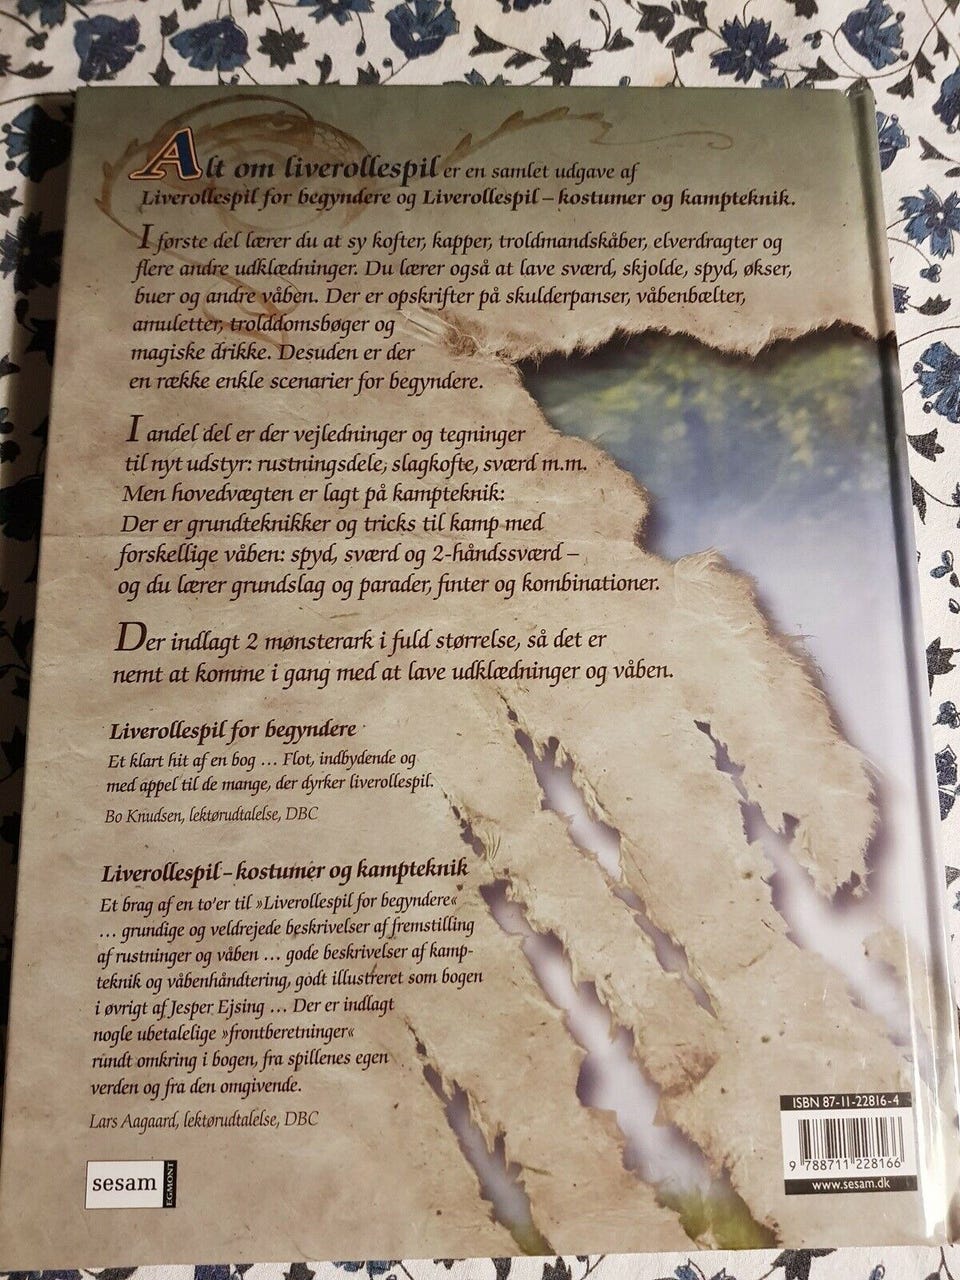 Alt om liverollespil er en samlet udgave af
Liverollespil for begyndere og Liverollespil – kostumer og kampteknik.
I første del lærer du at sy kofter, kapper, troldmandskåber, elverdragter og
flere andre udklædninger. Du lærer også at lave sværd, skjolde, spyd, økser,
buer og andre våben. Der er opskrifter på skulderpanser, våbenbælter,
amuletter, trolddomsbøger og
magiske drikke. Desuden er der
en række enkle scenarier for begyndere.
I andel del er der vejledninger og tegninger
til nyt udstyr: rustningsdele, slagkofte, sværd m.m.
Men hovedvægten er lagt på kampteknik:
Der er grundteknikker og tricks til kamp med
forskellige våben: spyd, sværd og 2-håndssværd –
og du lærer grundslag og parader, finter og kombinationer.
Der indlagt 2 mønsterark i fuld størrelse, så det er
nemt at komme i gang med at lave udklædninger og våben.
Liverollespil for begyndere
Et klart hit af en bog … Flot, indbydende og
med appel til de mange, der dyrker liverollespil.
Bo Knudsen, lektørudtalelse, DBC
Liverollespil – kostumer og kampteknik
Et brag af en to'er til »Liverollespil for begyndere«
… grundige og veldrejede beskrivelser af fremstilling
af rustninger og våben … gode beskrivelser af kamp-
teknik og våbenhåndtering, godt illustreret som bogen
i øvrigt af Jesper Ejsing … Der er indlagt
nogle ubetalelige »frontberetninger«
rundt omkring i bogen, fra spillenes egen
verden og fra den omgivende.
Lars Aagaard, lektørudtalelse, DBC
sesam EGMONT
ISBN 87-11-22816-4
9 788711 228166
www.sesam.dk